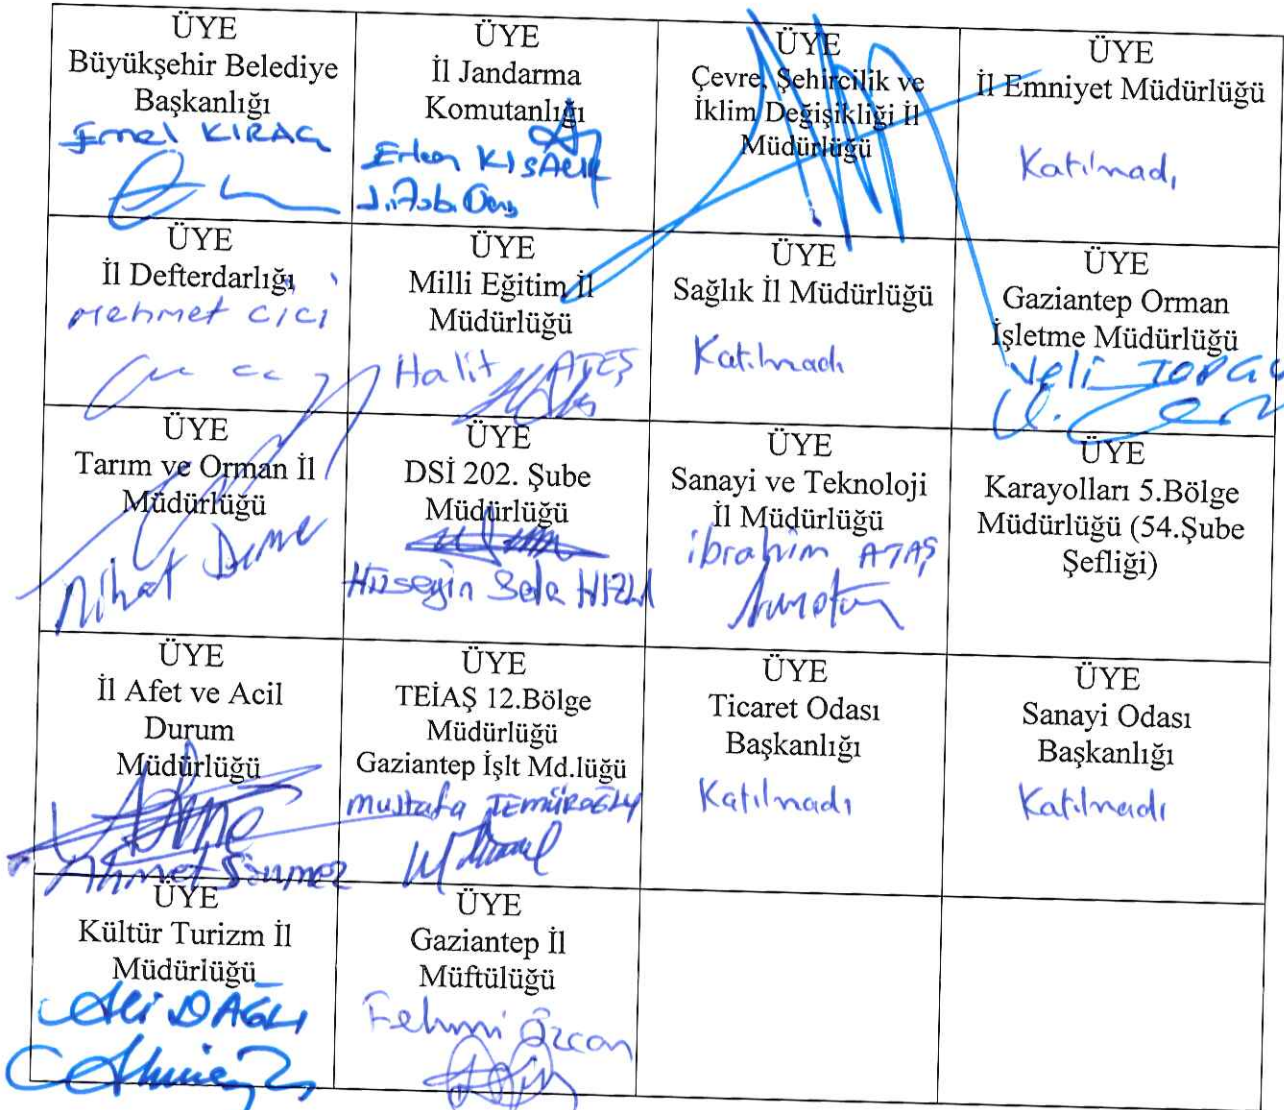 ÜYE
Büyükşehir Belediye
Başkanlığı
Emel KIRAÇ
ÜYE
İl Jandarma
Komutanlığı
Erkan KISACIK
ÜYE
Çevre, Şehircilik ve
İklim Değişikliği İl
Müdürlüğü
ÜYE
İl Emniyet Müdürlüğü
Katılmadı
ÜYE
İl Defterdarlığı
Mehmet CİCİ
ÜYE
Milli Eğitim İl
Müdürlüğü
Halit ATEŞ
ÜYE
Sağlık İl Müdürlüğü
Katılmadı
ÜYE
Gaziantep Orman
İşletme Müdürlüğü
Veli
ÜYE
Tarım ve Orman İl
Müdürlüğü
Nihat
ÜYE
DSİ 202. Şube
Müdürlüğü
Hüseyin Seda HIZLI
ÜYE
Sanayi ve Teknoloji
İl Müdürlüğü
İbrahim ATAŞ
ÜYE
Karayolları 5.Bölge
Müdürlüğü (54.Şube
Şefliği)
ÜYE
İl Afet ve Acil
Durum
Müdürlüğü
Ahmet Sönmez
ÜYE
TEİAŞ 12.Bölge
Müdürlüğü
Gaziantep İşlt Md.lüğü
Mustafa TEMÜROĞLU
ÜYE
Ticaret Odası
Başkanlığı
Katılmadı
ÜYE
Sanayi Odası
Başkanlığı
Katılmadı
ÜYE
Kültür Turizm İl
Müdürlüğü
Ali DAĞLI
ÜYE
Gaziantep İl
Müftülüğü
Fehmi Özcan